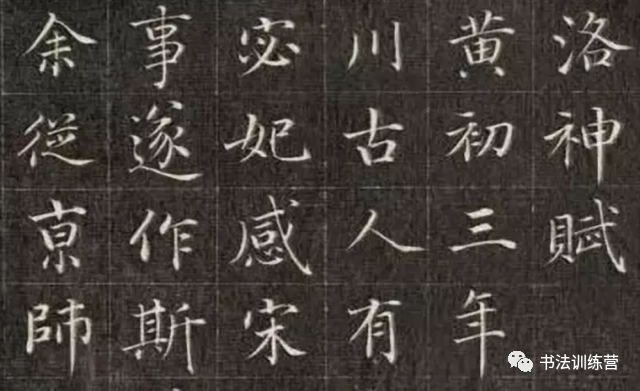 洛神賦
黄初三年
川古人有
宓妃感宋
事遂作斯
余従京師
书法训练营